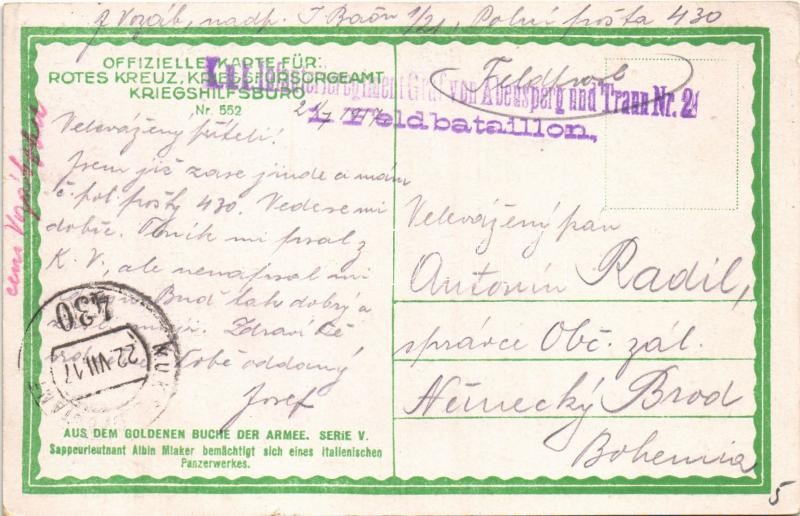 J Vozáb, nadp. I Baon 1/21, Polní pošta 430
OFFIZIELLE KARTE FÜR:
ROTES KREUZ, KRIEGSFÜRSORGEAMT
KRIEGSHILFSBÜRO
Nr. 552
Infanterieregiment Graf von Abensperg und Traun Nr. 21
1. Feldbataillon,
Feldpost
Velevážený příteli!
Jsem již zase jinde a mám
č. pol. pošty 430. Vede se mi
dobře. Tonik mi psal z
K. V., ale nenapsal mi
Buď tak dobrý a
Zdraví Tě
Tobě oddaný
Josef
430
22.VII.17
Velevážený pán
Antonín Radil,
správce Obč. zál.
Německý Brod
Bohemia
5
AUS DEM GOLDENEN BUCHE DER ARMEE. SERIE V.
Sappeurleutnant Albin Mlaker bemächtigt sich eines italienischen
Panzerwerkes.